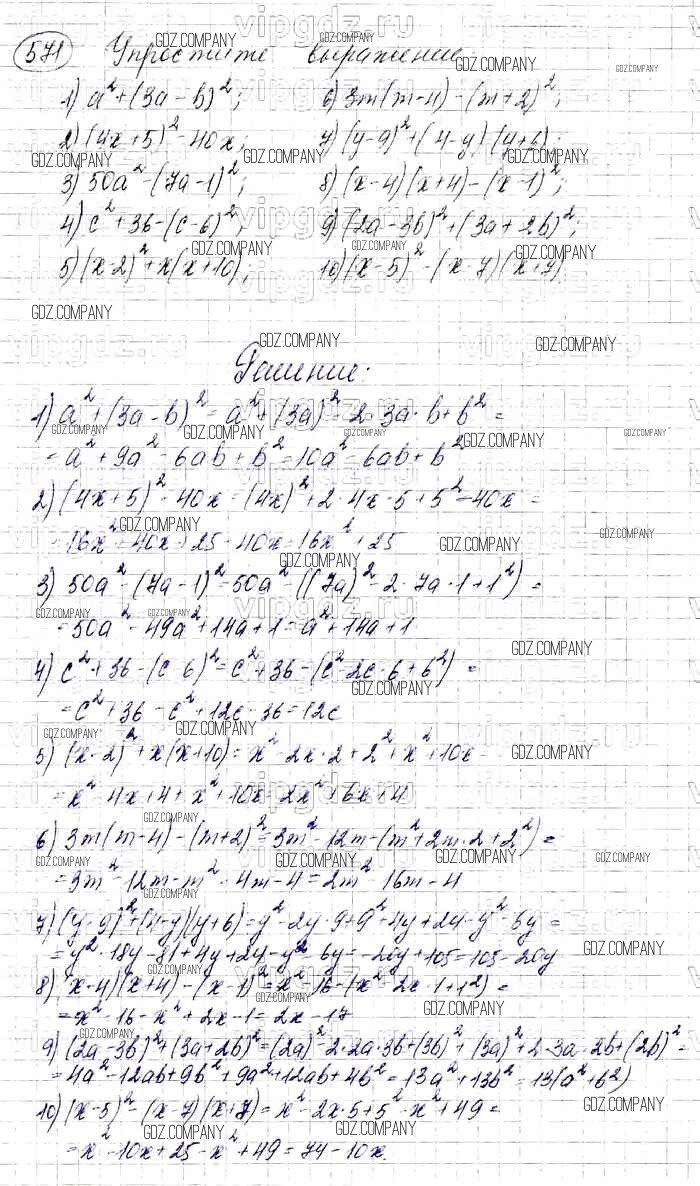 571 Упростите выражение:
1) a² + (3a - b)²; 6) 3m(m-4) - (m+2)²;
2) (4x+5)² - 40x; 7) (y-9)² + (4-y)(y+6);
3) 50a² - (7a-1)²; 8) (x-4)(x+4) - (x-1)²;
4) c² + 36 - (c-6)²; 9) (2a-3b)² + (3a+2b)²;
5) (x-2)² + x(x+10); 10) (x-5)² - (x-7)(x+7)
Решение:
1) a² + (3a-b)² = a² + (3a)² - 2·3a·b + b² =
= a² + 9a² - 6ab + b² = 10a² - 6ab + b²
2) (4x+5)² - 40x = (4x)² + 2·4x·5 + 5² - 40x =
= 16x² + 40x + 25 - 40x = 16x² + 25
3) 50a² - (7a-1)² = 50a² - ((7a)² - 2·7a·1 + 1²) =
= 50a² - 49a² + 14a + 1 = a² + 14a + 1
4) c² + 36 - (c-6)² = c² + 36 - (c² - 2c·6 + 6²) =
= c² + 36 - c² + 12c - 36 = 12c
5) (x-2)² + x(x+10) = x² - 2x·2 + 2² + x² + 10x =
= x² - 4x + 4 + x² + 10x = 2x² + 6x + 4
6) 3m(m-4) - (m+2)² = 3m² - 12m - (m² + 2m·2 + 2²) =
= 3m² - 12m - m² - 4m - 4 = 2m² - 16m - 4
7) (y-9)² + (4-y)(y+6) = y² - 2y·9 + 9² + 4y + 24 - y² - 6y =
= y² - 18y - 81 + 4y + 24 - y² - 6y = -20y + 105 = 105 - 20y
8) (x-4)(x+4) - (x-1)² = x² - 16 - (x² - 2x·1 + 1²) =
= x² - 16 - x² + 2x - 1 = 2x - 17
9) (2a-3b)² + (3a+2b)² = (2a)² - 2·2a·3b + (3b)² + (3a)² + 2·3a·2b + (2b)² =
= 4a² - 12ab + 9b² + 9a² + 12ab + 4b² = 13a² + 13b² = 13(a² + b²)
10) (x-5)² - (x-7)(x+7) = x² - 2x·5 + 5² - x² + 49 =
= x² - 10x + 25 - x² + 49 = 74 - 10x.